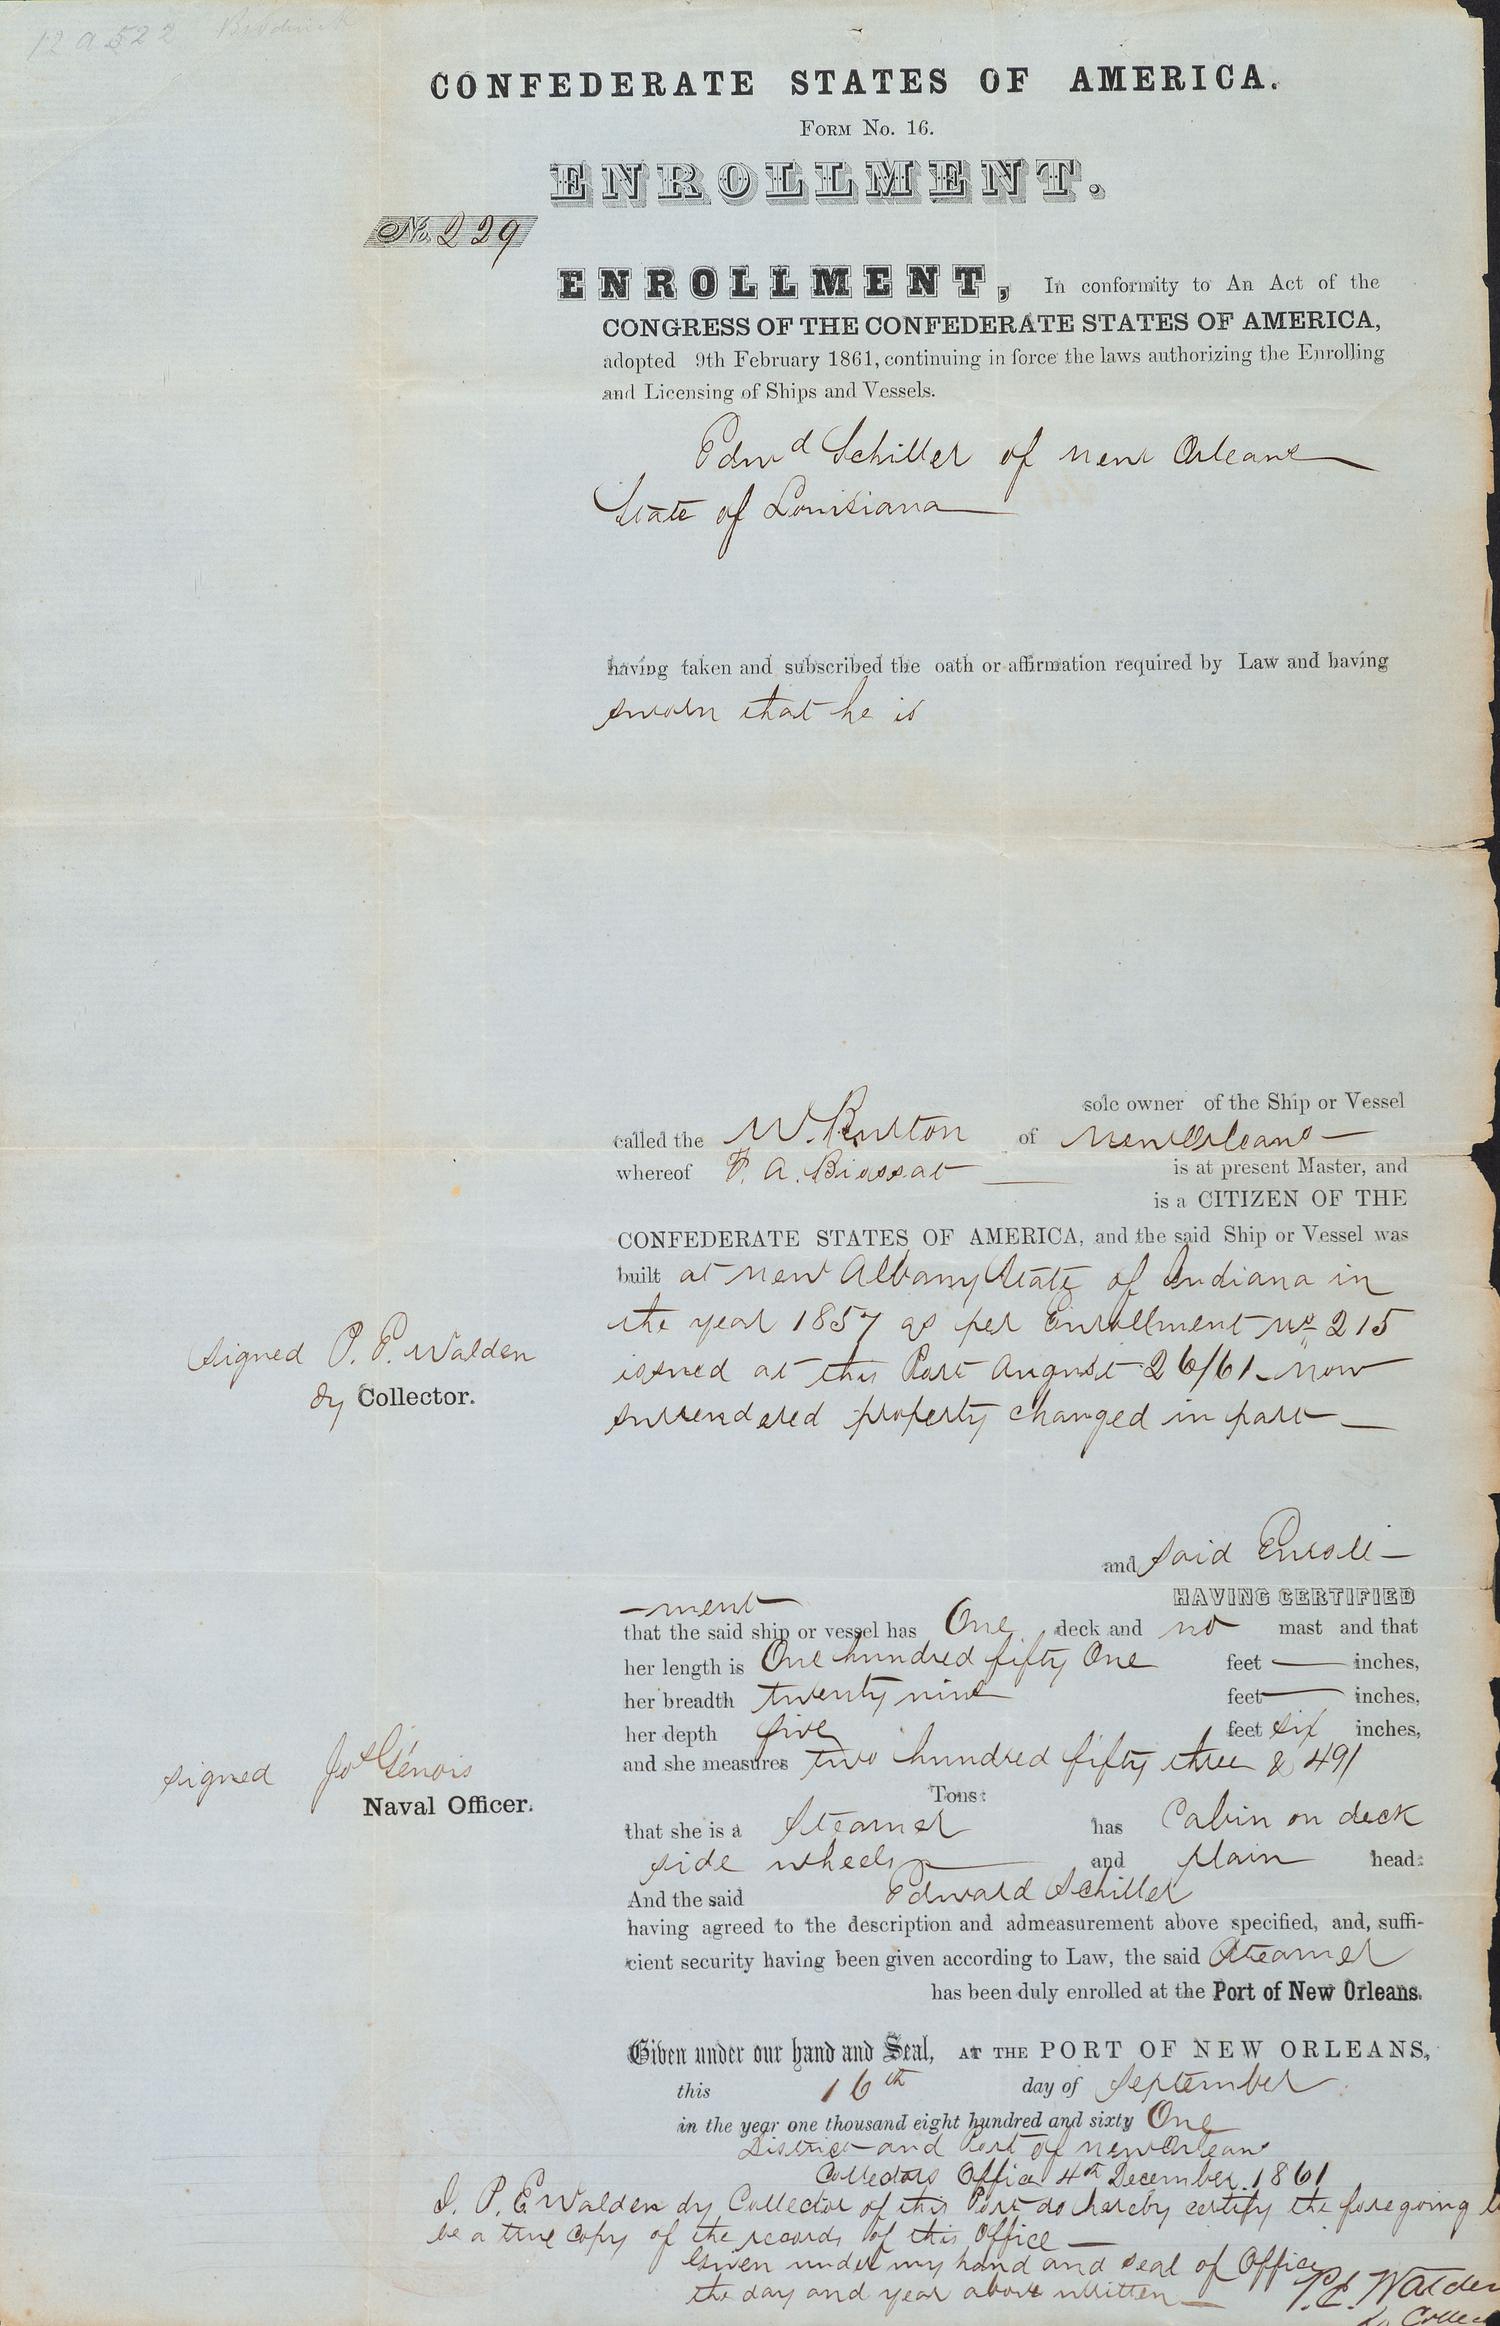 12 A 522 Brodwick
CONFEDERATE STATES OF AMERICA.
FORM No. 16.
ENROLLMENT.
No. 229
ENROLLMENT, In conformity to An Act of the
CONGRESS OF THE CONFEDERATE STATES OF AMERICA,
adopted 9th February 1861, continuing in force the laws authorizing the Enrolling
and Licensing of Ships and Vessels.
Edwd Schiller of New Orleans
State of Louisiana
having taken and subscribed the oath or affirmation required by Law and having
sworn that he is
sole owner of the Ship or Vessel
called the W. Burton of New Orleans
whereof F. A. Biossat is at present Master, and
is a CITIZEN OF THE
CONFEDERATE STATES OF AMERICA, and the said Ship or Vessel was
built at New Albany State of Indiana in
the year 1857 as per Enrollment No 215
issued at this Port August 26/61 - Now
surrendered property changed in part
signed P. E. Walden
dy Collector.
and said Enroll-
-ment HAVING CERTIFIED
that the said ship or vessel has One deck and no mast and that
her length is One hundred fifty One feet — inches,
her breadth twenty nine feet — inches,
her depth five feet six inches,
and she measures two hundred fifty three & 49/
Tons:
signed Jos Génois
Naval Officer.
that she is a Steamer has Cabin on deck
side wheels and plain head:
And the said Edward Schiller
having agreed to the description and admeasurement above specified, and, suffi-
cient security having been given according to Law, the said Steamer
has been duly enrolled at the Port of New Orleans.
Given under our hand and Seal, AT THE PORT OF NEW ORLEANS,
this 16th day of September
in the year one thousand eight hundred and sixty One
District and Port of New Orleans
Collectors Office 4th December 1861
I. P. E Walden dy Collector of this Port do hereby certify the foregoing
be a true copy of the records of this Office
Given under my hand and seal of Office
the day and year above written
P. E. Walden